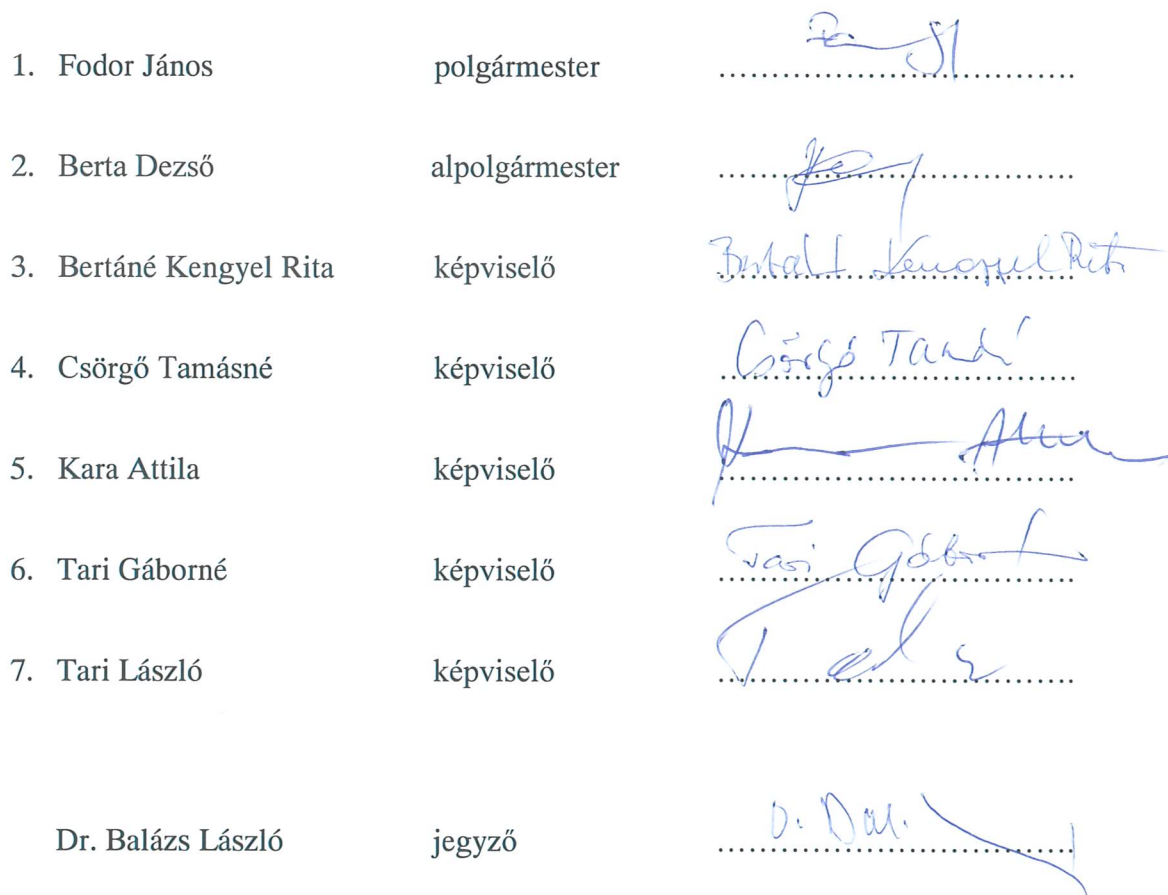 1. Fodor János polgármester ....................
2. Berta Dezső alpolgármester ....................
3. Bertáné Kengyel Rita képviselő Kengyel Rita
4. Csörgő Tamásné képviselő Csörgő
5. Kara Attila képviselő ....................
6. Tari Gáborné képviselő Tari
7. Tari László képviselő ....................
Dr. Balázs László jegyző ....................